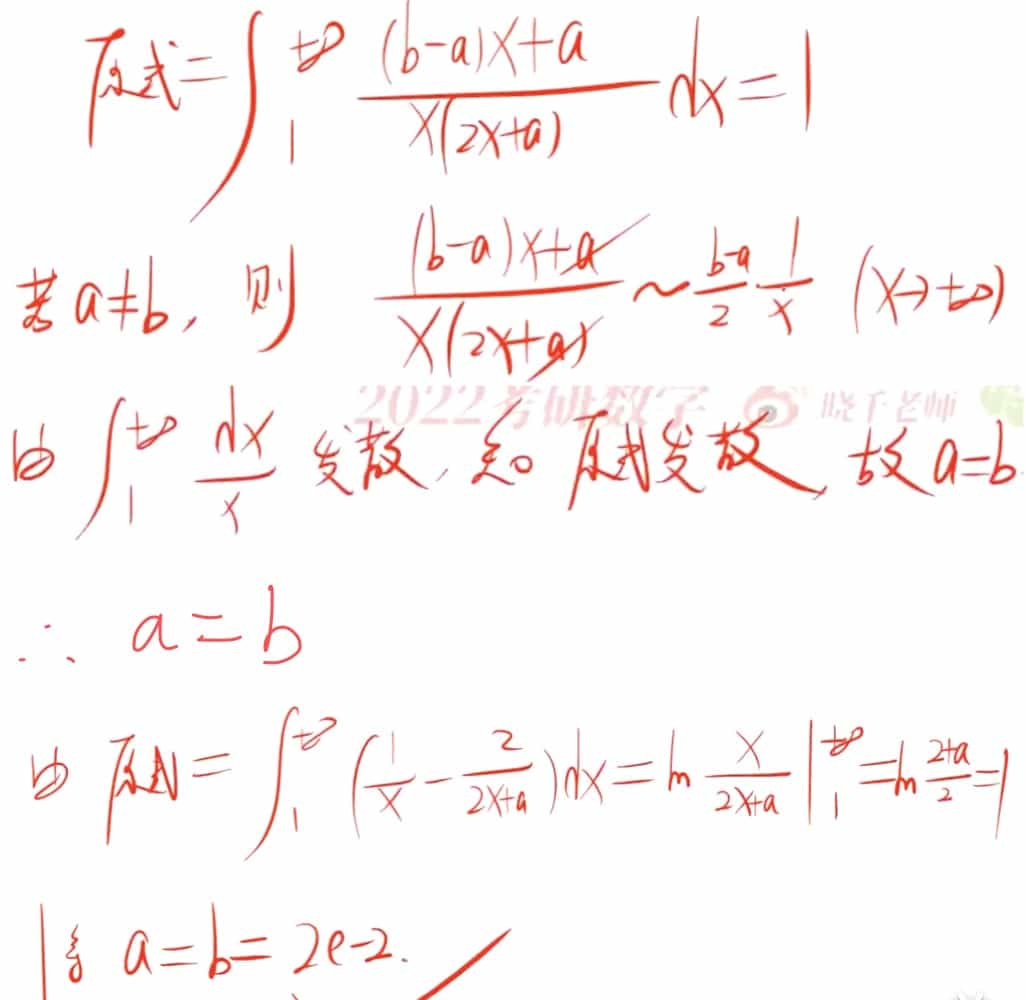 原式=∫₁^{+∞} \frac{(b-a)x+a}{x(2x+a)} dx=1
若 a≠b, 则 \frac{(b-a)x+a}{x(2x+a)} ~ \frac{b-a}{2} \frac{1}{x} (x→+∞)
2022考研数学 晓千老师
由 ∫₁^{+∞} \frac{dx}{x} 发散, 知 原式发散, 故 a=b
∴ a=b
由 原式=∫₁^{+∞} (\frac{1}{x}-\frac{2}{2x+a})dx=ln \frac{x}{2x+a}|₁^{+∞}=ln \frac{2+a}{2}=1
得 a=b=2e-2.